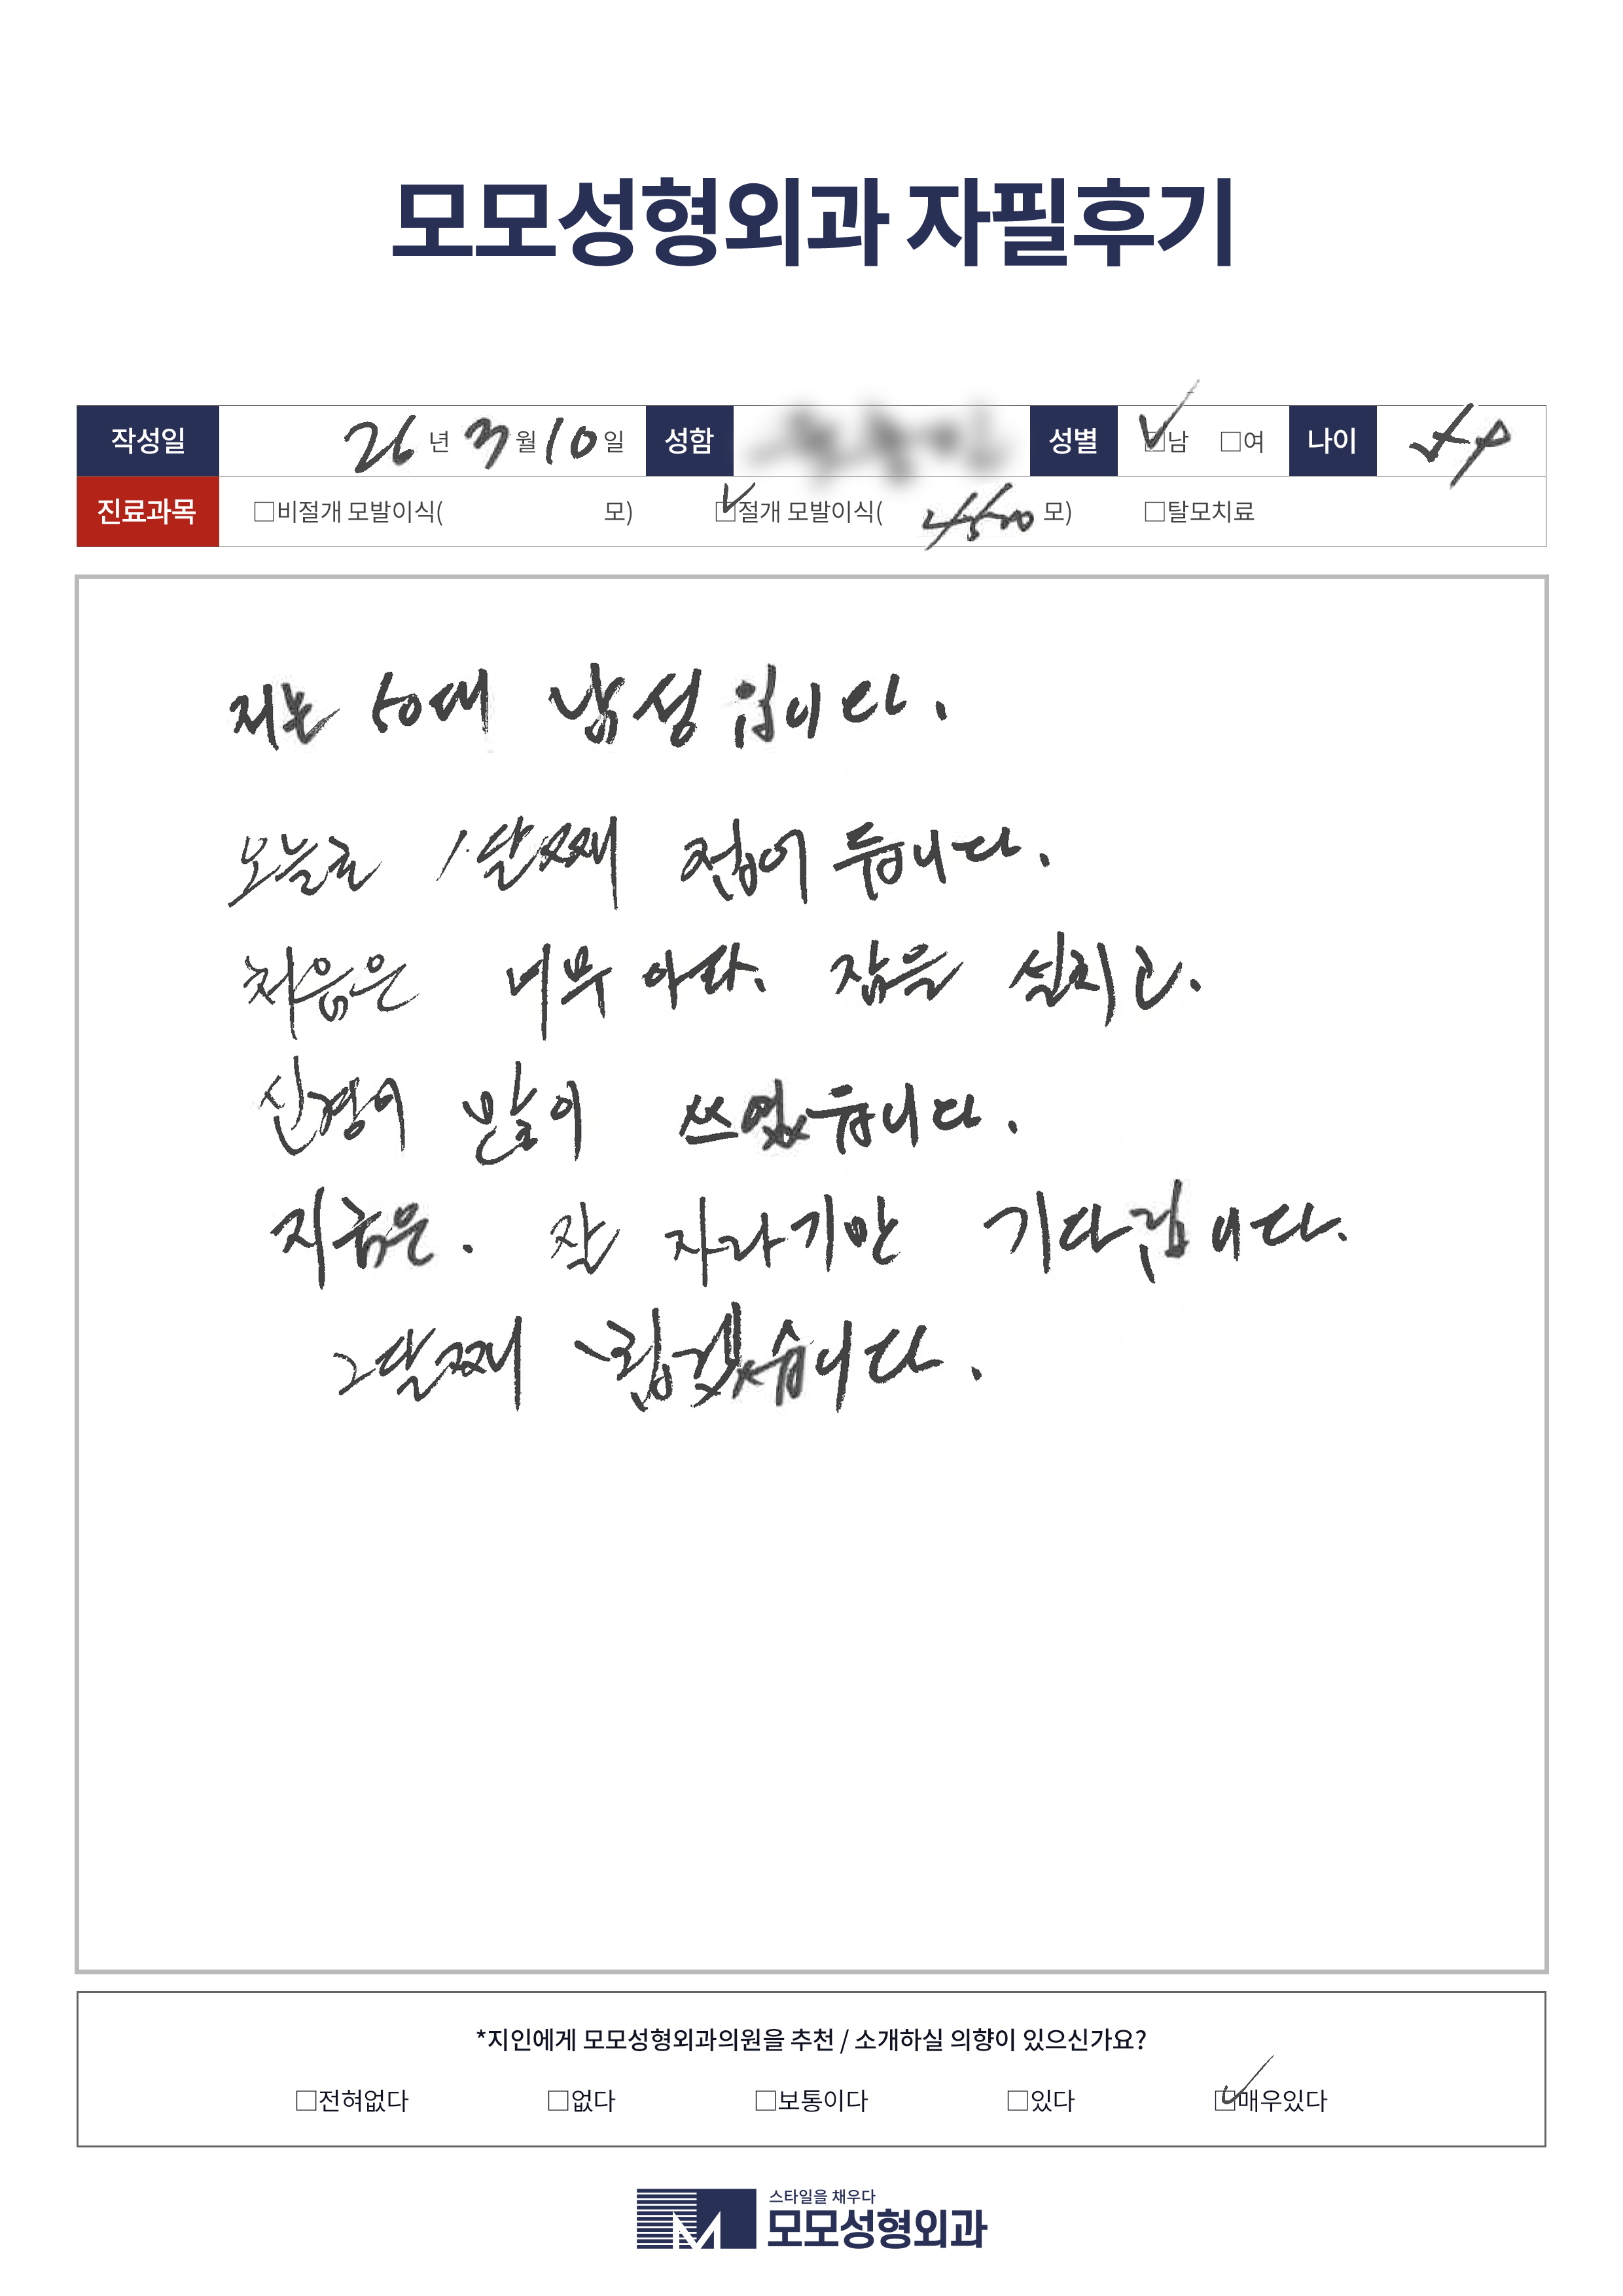 모모성형외과 자필후기
작성일 26년 3월 10일 성함 성별 ☑남 □여 나이
진료과목 □비절개 모발이식( 모) ☑절개 모발이식( 4500 모) □탈모치료
저는 50대 남성 입니다.
오늘로 1달째 접어 듭니다.
처음은 너무 아파. 잠을 설치고.
신경이 많이 쓰였습니다.
지금은. 잘 자라기만 기다립니다.
2달째 뵙겠습니다.
*지인에게 모모성형외과의원을 추천 / 소개하실 의향이 있으신가요?
□전혀없다 □없다 □보통이다 □있다 ☑매우있다
스타일을 채우다
모모성형외과